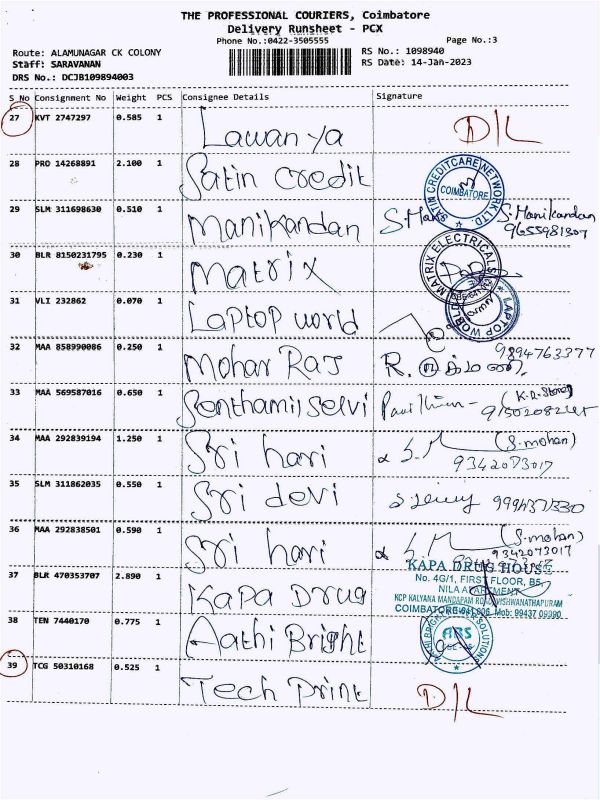 THE PROFESSIONAL COURIERS, Coimbatore
Delivery Runsheet - PCX
Phone No.:0422-3505555 Page No.:3
Route: ALAMUNAGAR CK COLONY RS No.: 1098940
Staff: SARAVANAN RS Date: 14-Jan-2023
DRS No.: DCJB109894003
S No Consignment No Weight PCS Consignee Details Signature
27 KVT 2747297 0.585 1 Lawanya D/L
28 PRO 14268891 2.100 1 Satin Credit SATIN CREDITCARE NETWORK LTD. COIMBATORE
29 SLM 311698630 0.510 1 Manikandan S. Manikandan
9655981807
30 BLR 8150231795 0.230 1 Matrix MATRIX ELECTRICALS
31 VLI 232862 0.070 1 Laptop world LAPTOP WORLD
32 MAA 858990086 0.250 1 Mohar Raj R. 9894763377
33 MAA 569587016 0.650 1 Senthamil selvi (K.R. Stores)
34 MAA 292839194 1.250 1 Sri hari S.M (S.mohan)
9342073017
35 SLM 311862035 0.550 1 Sri devi
36 MAA 292838501 0.590 1 Sri hari S.M (S.mohan)
9342073017
37 BLR 470353707 2.890 1 Kapa Drug KAPA DRUG HOUSE
No. 4G/1, FIRST FLOOR, B5,
NILA APARTMENT
NCP KALYANA MANDAPAM ROAD, VISHWANATHAPURAM
COIMBATORE Mob: 99437
38 TEN 7440170 0.775 1 Aathi Bright AATHI BRIGHT SOLUTIONS ABS
39 TCG 50310168 0.525 1 Tech Print D/L